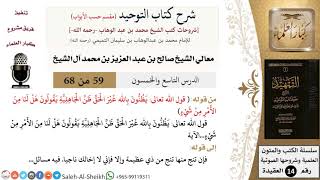 شرح كتاب التوحيد
[مقسم حسب الأبواب]
(شروحات كتب الشيخ محمد بن عبد الوهاب -رحمه الله-)
للإمام محمد بن عبدالوهاب بن سليمان التميمي (رحمه الله)
معالي الشيخ صالح بن عبد العزيز بن محمد آل الشيخ
الدرس التاسع والخمسون
59 من 68
من قوله: ( قول الله تعالى: يَظُنُّونَ بِاللَّهِ غَيْرَ الْحَقِّ ظَنَّ الْجَاهِلِيَّةِ يَقُولُونَ هَل لَّنَا مِنَ الْأَمْرِ مِن شَيْءٍ)
( قول الله تعالى: يَظُنُّونَ بِاللَّهِ غَيْرَ الْحَقِّ ظَنَّ الْجَاهِلِيَّةِ يَقُولُونَ هَل لَّنَا مِنَ الْأَمْرِ مِن شَيْءٍ)...الآية
إلى قوله:
فإن تنج منها تنج من ذي عظيمة وإلا فإني لا إخالك ناجيا، فيه مسائل..
Saleh-Al-Sheikh
+965-99119311
تنفيذ
فريق مشروع
كبار العلماء
التمهيد
سلسلة الكتب والمتون
العلمية وشروحها الصوتية
رقم 14 العقيدة